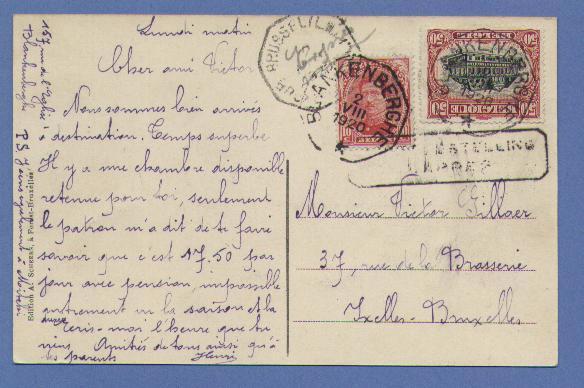 Lundi matin
Cher ami Victor
Nous sommes bien arrivés
à destination. Temps superbe
Il y a une chambre disponible
retenue pour toi, seulement
le patron m'a dit de te faire
savoir que c'est 17.50 par
jour avec pension, impossible
autrement vu la saison et la
Ecris-moi l'heure que tu
viens. Amitiés de tous ainsi qu'à
tes parents Henri
167 rue de l'Eglise
Blankenberghe
P.S. J'écris également à
Edition A. Preaux-Bruxelles
BRUSSEL
BLANKENBERGHE
2
VIII
1920
BLANKENBERGHE
50 50
BELGIQUE
BESTELLING
EXPRES
Monsieur Victor Gillaer
37, rue de la Brasserie
Ixelles-Bruxelles